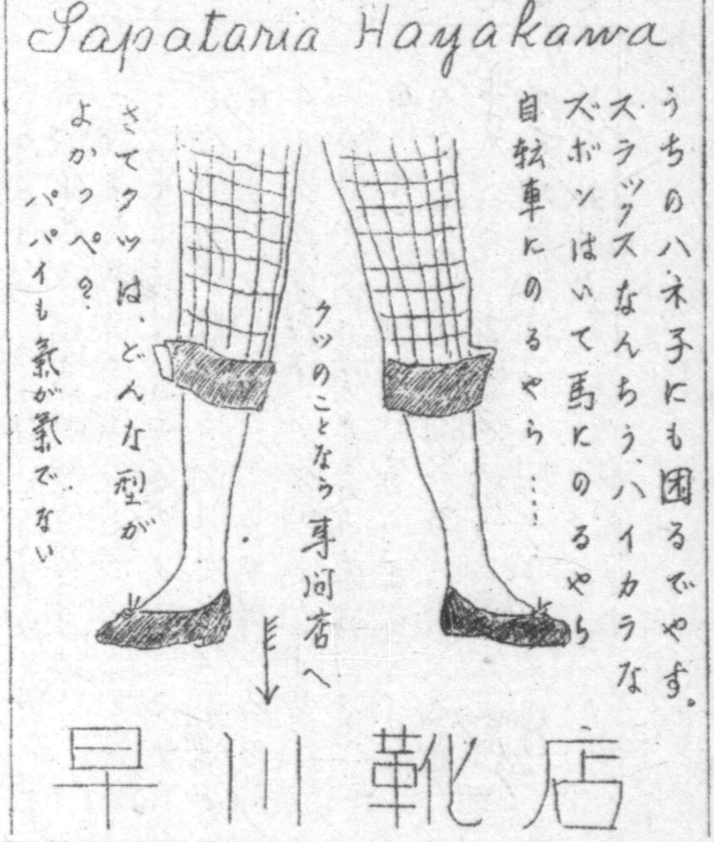 Sapataria Hayakawa
うちのハネ子にも困るでやす。
スラックスなんちう、ハイカラな
ズボンはいて馬にのるやら
自転車にのるやら……
クツのことなら専门店へ
さてクツは、どんな型が
よかっぺの?
パパイも氣が氣でない
早川靴店